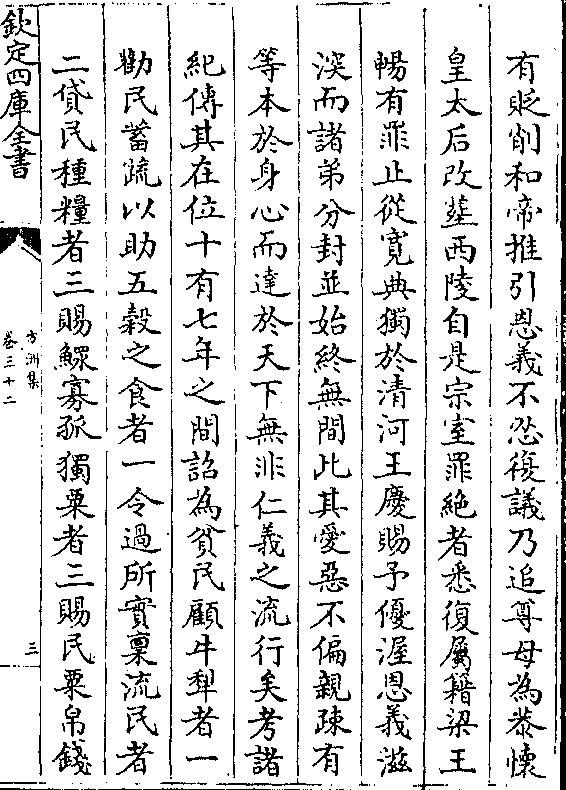 有貶削和帝推引恩義不忍復議乃追尊母為恭懷
皇太后改塟西陵自是宗室罪絶者悉復屬籍梁王
暢有罪止從寛典獨於清河王慶賜予優渥恩義滋
深而諸弟分封並始終無間此其愛惡不偏親疎有
等本於身心而達於天下無非仁義之流行矣考諸
紀傳其在位十有七年之間詔為貧民顧牛犁者一
勸民蓄蔬以助五穀之食者一令過所實稟流民者
二貸民種糧者三賜鰥寡孤獨粟者三賜民粟帛錢
欽定四庫全書
方洲集
卷三十二
三